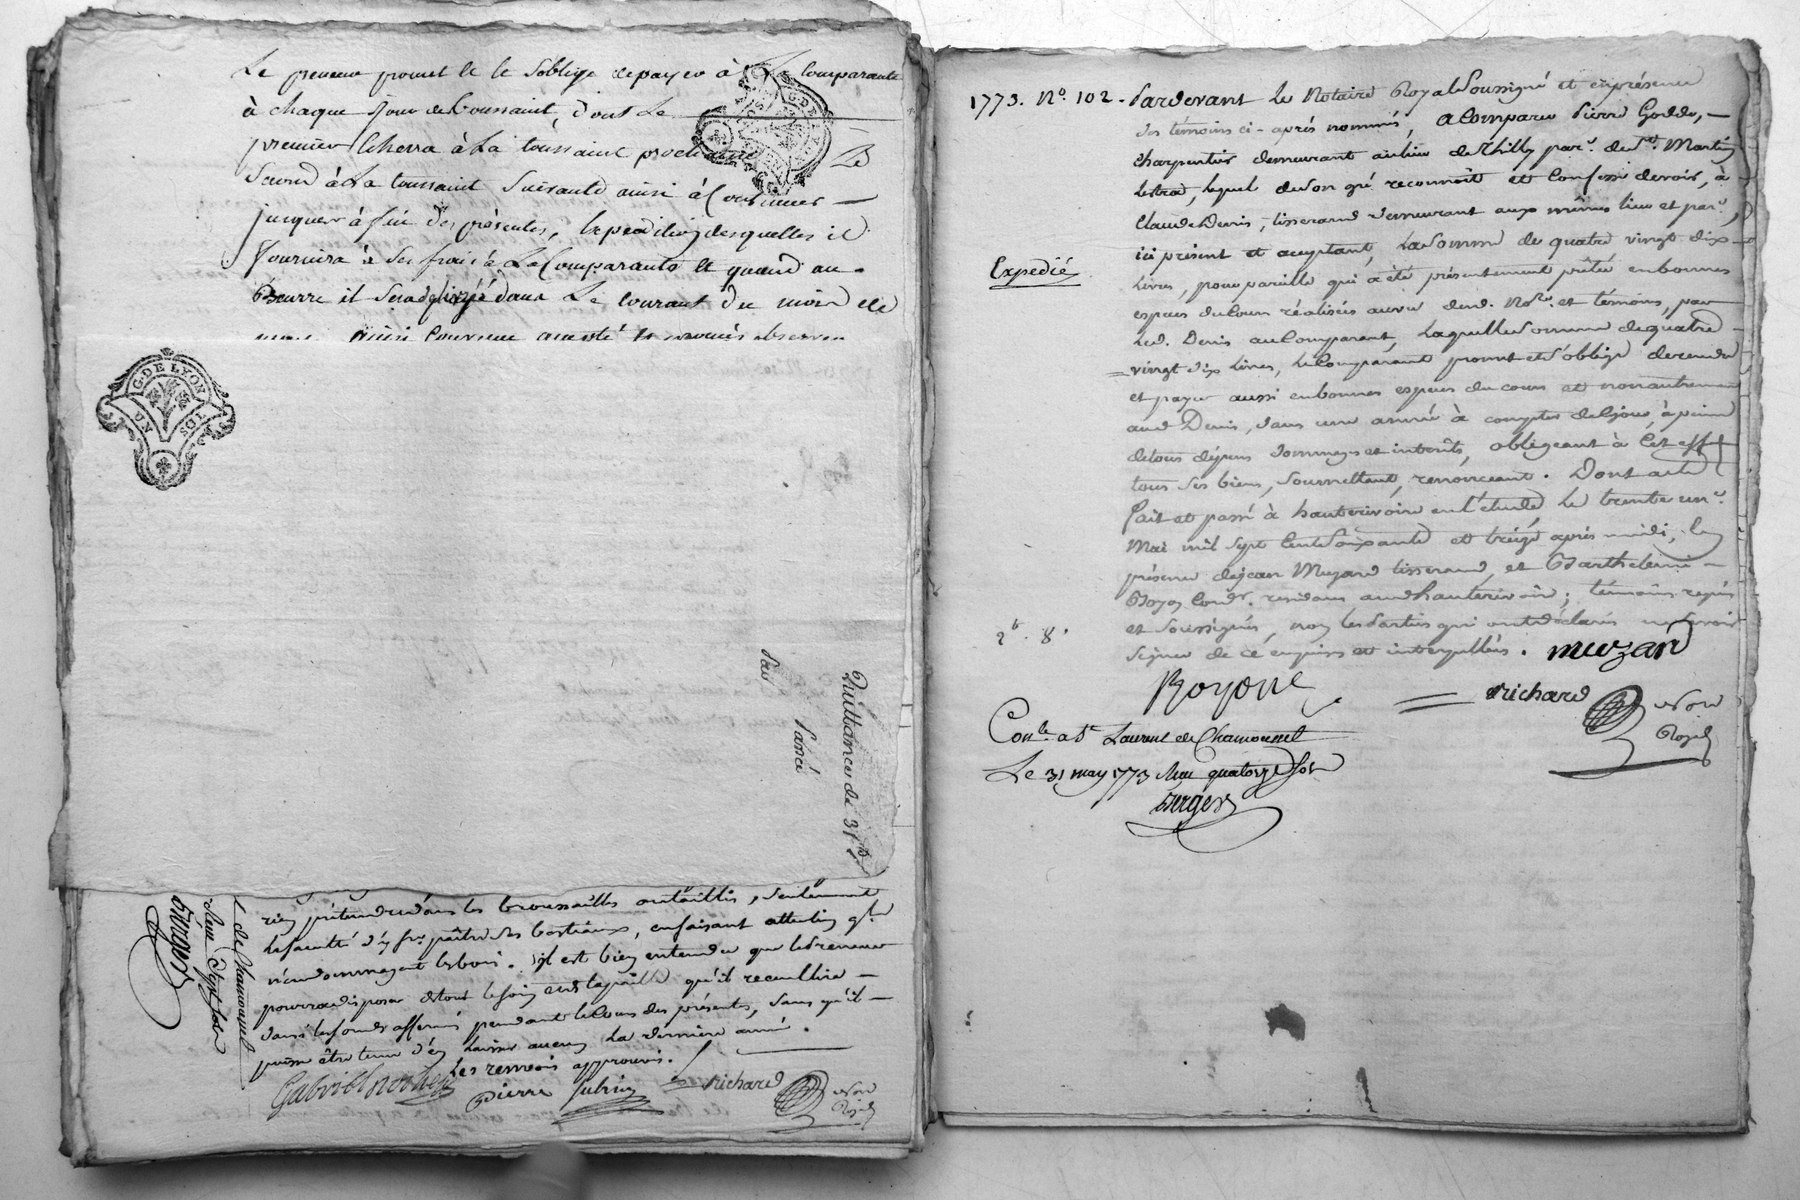 Le preneur promet et s'oblige de payer à La comparante
à chaque jour de Toussaint, dont Le
premier Echerra à La toussaint prochaine Le
Second à La toussaint Suivante ainsi à Continuer
jusques à fin des présentes, Expedition desquelles il
fournira à Ses frais à La Comparante Et quand au
Beurre il Sera délivré dans Le courant du mois de
ainsi Convenu
G. DE LYON
UN SOL
Quittance de
Par
rien prétendre dans les broussailles ou taillis, Seulement
la faculté d'y fre. paître Ses bestiaux, en faisant attention qls.
n'endommagent les bois. il est bien entendu que le Preneur
pourra disposer de tout le foin et de la paille qu'il recueillira
dans les fonds affermés pendant le Cours des présentes, Sans qu'il
puisse être tenu d'en Laisser aucun La dernière année.
Les renvois approuvés.
Pierre
richard
Nore
Royal
de Chamousset
Reçu Sept Sols
Bergeron
1773. No. 102. Pardevant Le Notaire Royal Soussigné et en présence
des témoins ci-après nommés, a Comparu Pierre Goddo,
charpentier demeurant au lieu de Thilly par. de St. Martin
Lestra, lequel de Son gré reconnoit et Confesse devoir, à
Claude Denis, tisserand demeurant aux mêmes lieu et par.,
ici présent et acceptant, La Somme de quatre vingt dix
Expedié
Livres, pour pareille qui a été présentement prêtée en bonnes
espèces du Cours réalisées au vu dud. Nore. et témoins, par
Led. Denis au Comparant, Laquelle Somme de quatre
vingt dix Livres, le Comparant promet et S'oblige de rendre
et payer aussi en bonnes espèces du cours et non autrement
aud. Denis, dans une année à compter de Ce jour, à peine
de tous dépens dommages et intérêts, obligeant à Cet effet
tous Ses biens, Soumettant, renonceant. Dont acte
fait et passé à hauterivoire en l'étude le trente un
Mai mil Sept Cent Soixante et treize après midi, En
présence de jean Muzard tisserand, et Barthelemi
Royon Cord. residans aud. hauterivoire; témoins requis
et Soussignés, non les Parties qui ont déclaré ne Savoir
2 8
Signer de ce enquises et interpellées. muzard
Royon
richard
Nore
Royal
Conle. a St Laurent de Chamousset
Le 31 may 1773 Reçu quatorze Sols
Bergeron